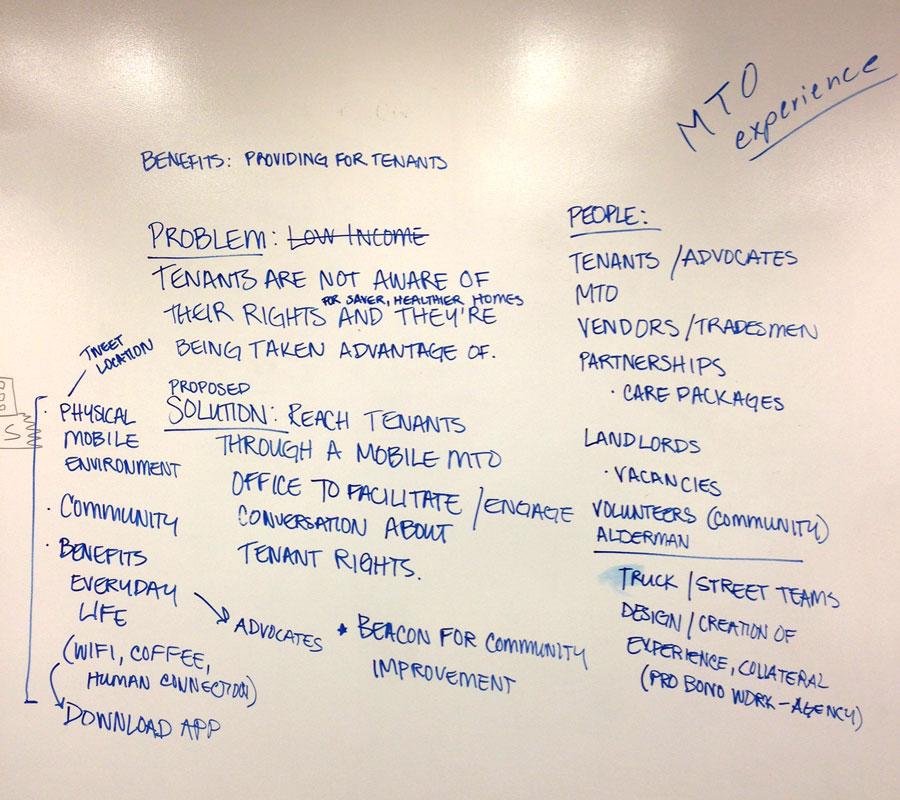 MTO
experience
BENEFITS: PROVIDING FOR TENANTS
PROBLEM: LOW INCOME
TENANTS ARE NOT AWARE OF
FOR SAVER, HEALTHIER HOMES
THEIR RIGHTS AND THEY'RE
BEING TAKEN ADVANTAGE OF.
PROPOSED
SOLUTION: REACH TENANTS
THROUGH A MOBILE MTO
OFFICE TO FACILITATE / ENGAGE
CONVERSATION ABOUT
TENANT RIGHTS.
TWEET
LOCATION
S
· PHYSICAL
MOBILE
ENVIRONMENT
· COMMUNITY
· BENEFITS
EVERYDAY
LIFE
(WIFI, COFFEE,
HUMAN CONNECTION)
DOWNLOAD APP
ADVOCATES
• BEACON FOR COMMUNITY
IMPROVEMENT
PEOPLE:
TENANTS / ADVOCATES
MTO
VENDORS / TRADESMEN
PARTNERSHIPS
· CARE PACKAGES
LANDLORDS
· VACANCIES
VOLUNTEERS (COMMUNITY)
ALDERMAN
TRUCK / STREET TEAMS
DESIGN / CREATION OF
EXPERIENCE, COLLATERAL
(PRO BONO WORK - AGENCY)